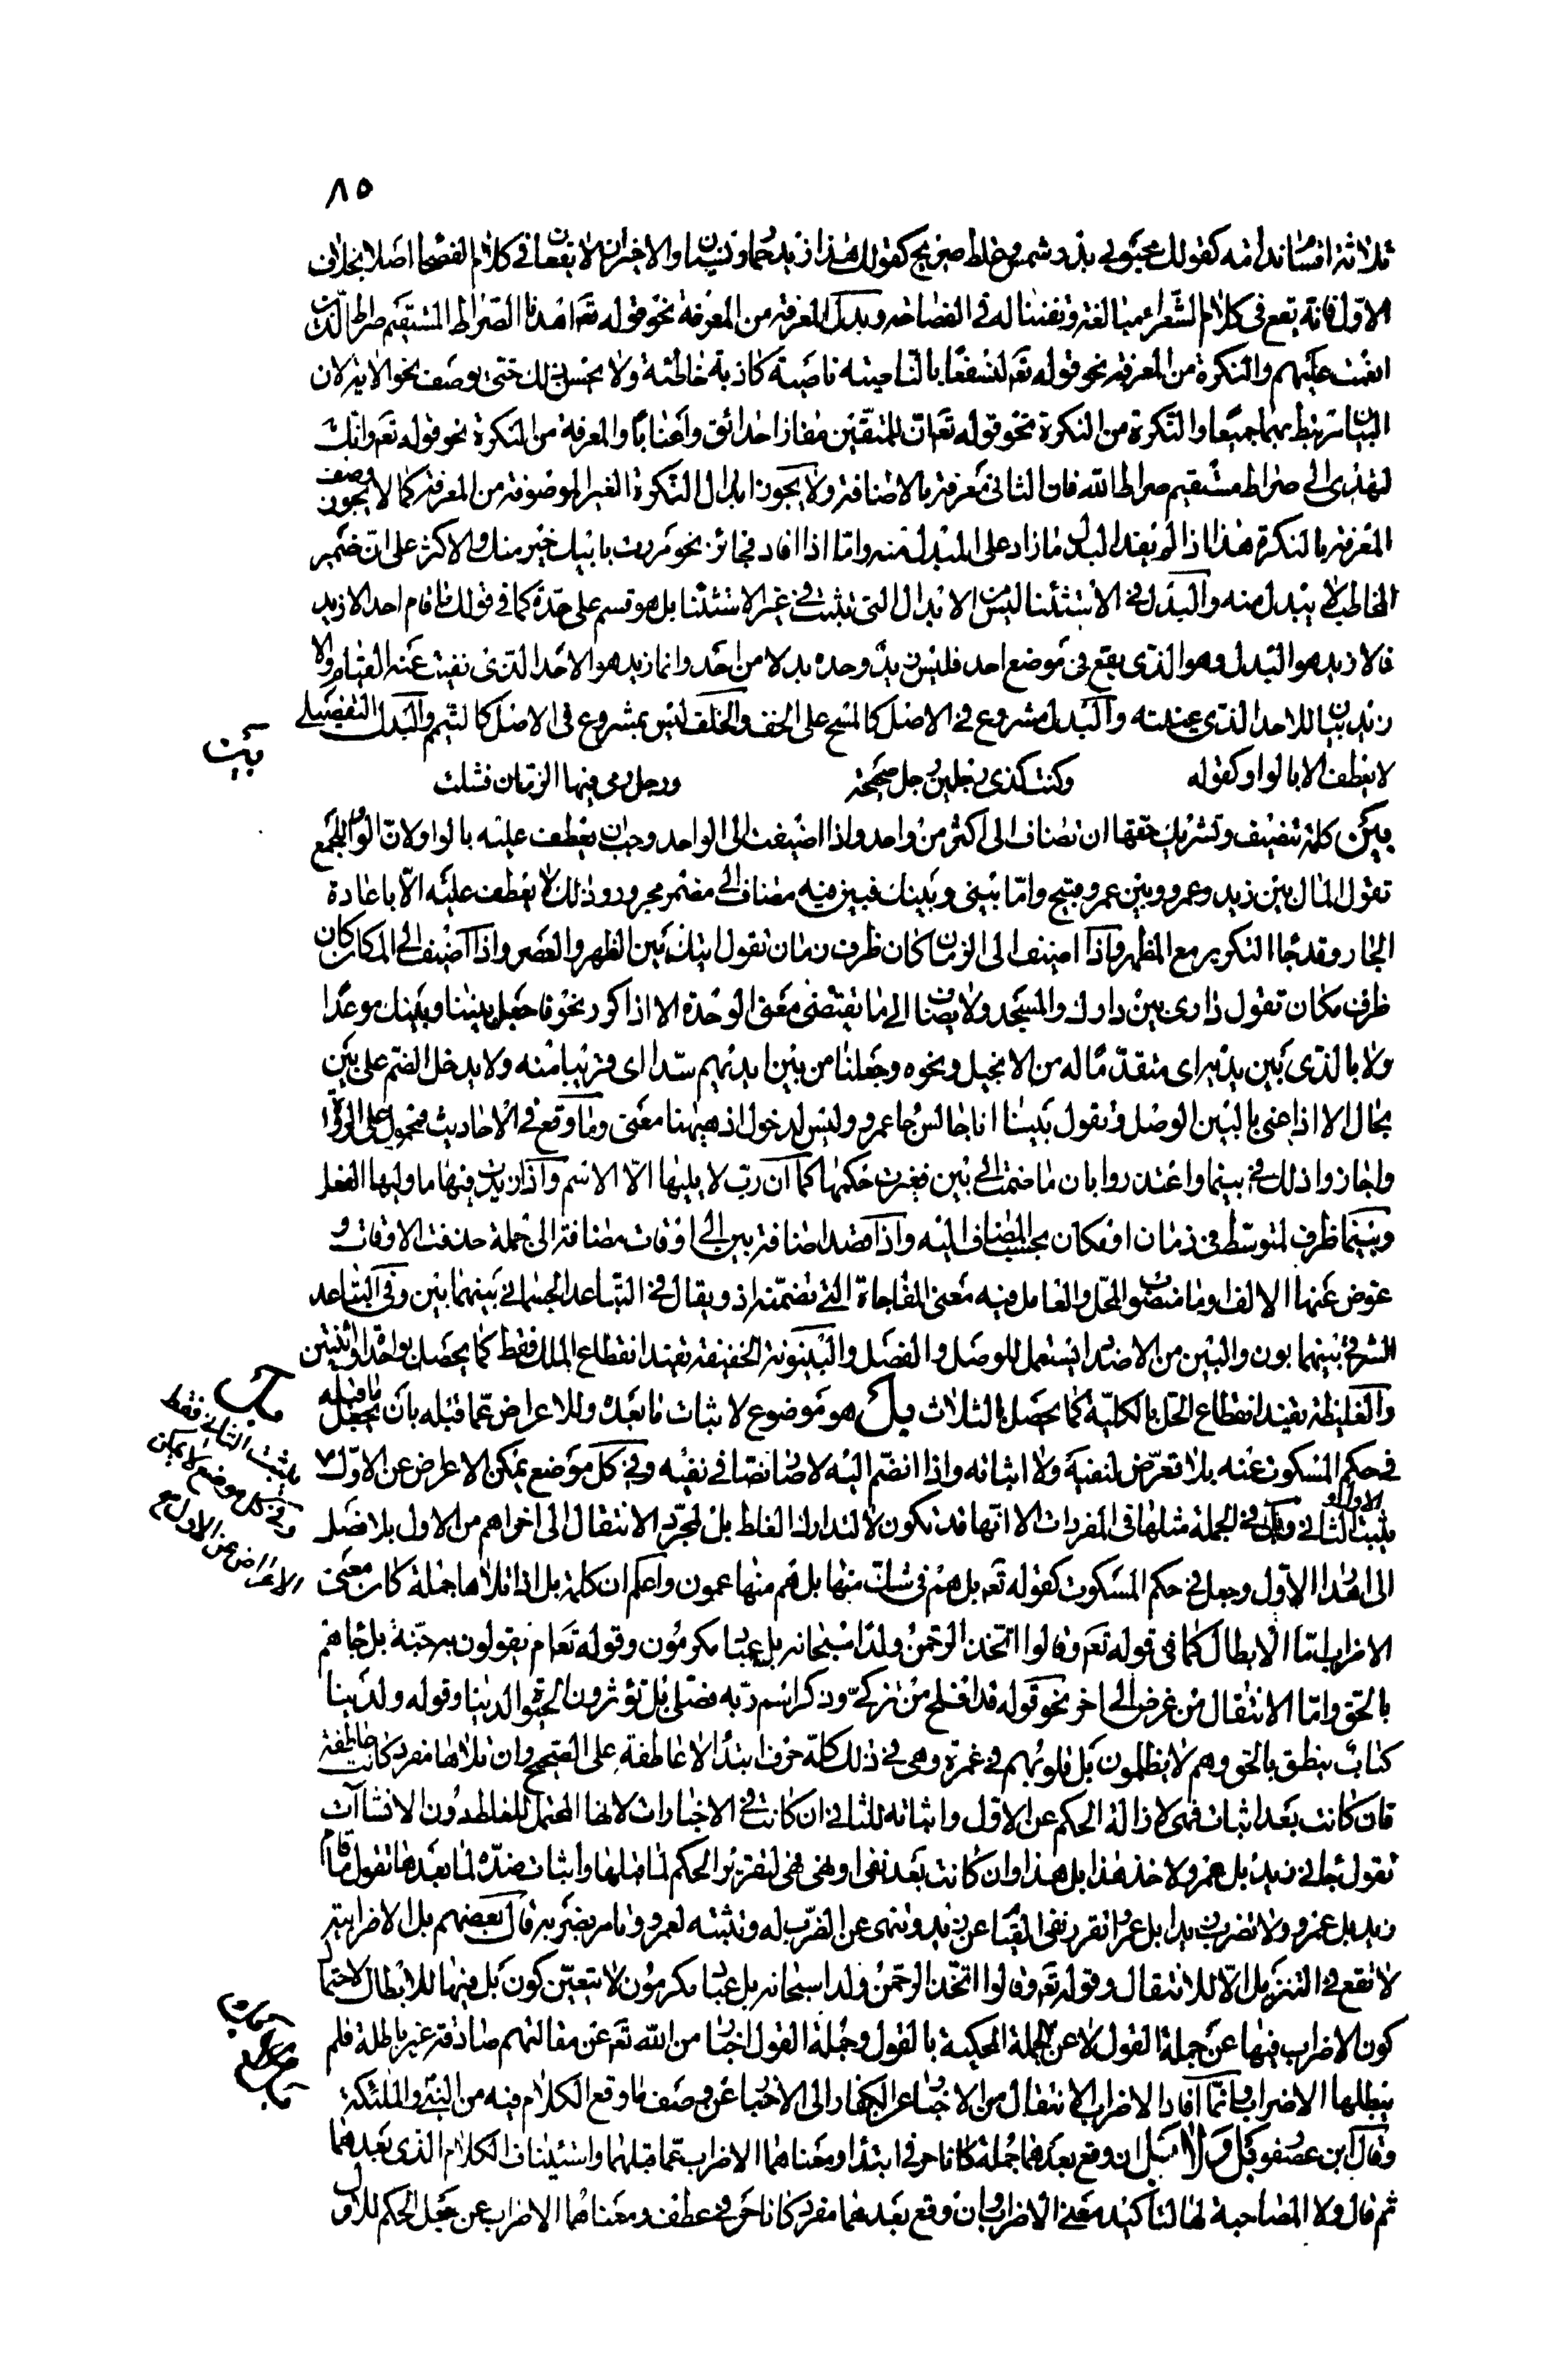 ٨٥
ثلاثة اقسام ندامة كقولك محبوبي بدر وشمس وغلط صريح كقولك هذا زيد حمار ونسيان والاخيران لا يقعان في كلام الفصحا اصلا بخلاف
الاول فانه يقع في كلام الشعراء مبالغة وتفننا له في الفصاحة وبدل المعرفة من المعرفة نحو قوله تعم اهدنا الصراط المستقيم صراط الذين
انعمت عليهم والنكرة من المعرفة نحو قوله تعم لنسفعا بالناصية ناصية كاذبة خاطئة ولا يحسن ذلك حتى يوصف نحو الاية لان
البيان مرتبط بهما جميعا والنكرة من النكرة نحو قوله تعم ان للمتقين مفازا حدائق واعنابا والمعرفة من النكرة نحو قوله تعم وانك
لتهدى الى صراط مستقيم صراط الله فان الثاني معرفة بالاضافة ولا يجوز ابدال النكرة الغير الموصوفة من المعرفة كما لا يجوز وصف
المعرفة بالنكرة هذا اذا لم يفد البدل ما زاد على المبدل منه واما اذا افاد فجائز نحو مررت بابيك خير منك والاكثر على ان ضمير
المخاطب لا يبدل منه والبدل في الاستثناء ليس من الابدال التي تثبت في غير الاستثنا بل هو قسم على حدة كما في قولك ما قام احد الا زيد
فالا زيد هو البدل وهو الذي يقع في موضع احد فليس زيد وحده بدلا من احد وانما زيد هو الاحد الذي نفيت عنه القيام والا
زيد بيان للاحد الذي عينته والبدل مشروع في الاصل كالمسح على الخف والخلف ليس بمشروع في الاصل كالتيمم والبدل التفضيلي
لا يعطف الا بالواو كقوله وكنت كذى رجلين رجل صحيحة ورجل رمى فيها الزمان فشلت
بين
بين كلمة تنصيف وتشريك حقها ان تضاف الى اكثر من واحد واذا اضيفت الى الواحد وجب ان يعطف عليه بالواو لان الواو للجمع
تقول المال بين زيد وعمرو وبين عمرو قبيح واما بيني وبينك فبين فيه مضاف الى مضمر مجرور وذلك لا يعطف عليه الا باعادة
الجار وقد جا التكرير مع المظهر واذا اضيف الى الزمان كان ظرف زمان تقول اتيتك بين الظهر والعصر واذا اضيف الى المكان كان
ظرف مكان تقول دارى بين دارك والمسجد ولا يضاف الى ما يقتضى معنى الوحدة الا اذا كرر نحو فاجعل بيننا وبينك موعدا
ولا بالذى بين يديه اى متقدما له من الانجيل ونحوه وجعلنا من بين ايديهم سدا اى قريبا منه ولا يدخل الضم على بين
بحال الا اذا عنى بالبين الوصل وتقول بينا انا جالس جا عمرو وليس لدخول اذ ههنا معنى وما وقع في الاحاديث محمول على الرواة
واجازوا ذلك في بينما واعتذروا بان ما ضمت الى بين فغيرت حكمها كما ان رب لا يليها الا الاسم واذا زيدت فيها ما وليها الفعل
وبينما ظرف لمتوسط في زمان او مكان بحسب المضاف اليه واذا قصد اضافة بين الى اوقات مضافة الى جملة حذفت الاوقات و
عوض عنها الالف او ما منصوب المحل والعامل فيه معنى المفاجاة التي تضمنه اذ ويقال في التباعد الجسماني بينهما بين وفي التباعد
الشرفي بينهما بون والبين من الاضداد يستعمل للوصل والفصل والبينونة الخفيفة تفيد انقطاع الملك فقط كما يحصل بواحدة او ثنتين
والغليظة تفيد انقطاع الحل بالكلية كما يحصل بالثلاث بل هو موضوع لاثبات ما بعده وللاعراض عما قبله بان يجعل ما قبله
بل
في حكم المسكوت عنه بلا تعرض لنفيه ولا اثباته واذا انضم اليه لا صار نصا في نفيه وفي كل موضع يمكن الاعراض عن الاول
يثبت الثاني فقط وفي كل موضع لا يمكن الاعراض عن الاول مع
يثبت الثاني وبل في الجملة مثلها في المفردات الا انها قد تكون لا لتدارك الغلط بل لمجرد الانتقال الى اخر اهم من الاول بلا قصد
الى اهدار الاول وجعل في حكم المسكوت كقوله تعم بل هم في شك منها بل هم منها عمون واعلم ان كلمة بل اذا تلاها جملة كان معنى
الاضراب اما الابطال كما في قوله تعم وقالوا اتخذ الرحمن ولدا سبحانه بل عباد مكرمون وقوله تعم ام يقولون به جنة بل جاهم
بالحق واما الانتقال من غرض الى اخر نحو قوله قد افلح من تزكى وذكر اسم ربه فصلى بل تؤثرون الحيوة الدنيا وقوله ولدينا
كتاب ينطق بالحق وهم لا يظلمون بل قلوبهم في غمرة وهى في ذلك كله حرف ابتدا لا عاطفة على الصحيح وان تلاها مفرد كانت عاطفة
فان كانت بعد اثبات فهى لازالة الحكم عن الاول واثباته للثاني ان كانت في الاخبارات لانها المحتمل للغلط دون الانشاآت
تقول جانى زيد بل عمرو ولا خذ هذا بل هذا وان كانت بعد نفى او نهى فهى لتقرير الحكم لما قبلها واثبات ضده لما بعدها تقول ما قام
زيد بل عمرو ولا تضرب زيدا بل عمرا تقرر نفى القيام عن زيد وتنهى عن الضرب له وتثبته لعمرو وتامر بضربه قال بعضهم بل الاضرابية
لا تقع في التنزيل الا للانتقال وقوله تعم وقالوا اتخذ الرحمن ولدا سبحانه بل عباد مكرمون لا يتعين كون بل فيها للابطال لاحتمال
كون الاضراب فيها عن جملة القول لا عن الجملة المحكية بالقول وجملة القول اخبار من الله تعم عن مقالتهم صادقة غير باطلة فلم
يبطلها الاضراب وانما افاد الاضراب الانتقال من الاخبار عن الكفار الى الاخبار عن وصف ما وقع الكلام فيه من النبى والملئكة
وقال ابن عصفور بل ولا بل ان وقع بعدهما جملة كانا حرفي ابتدا ومعناهما الاضراب عما قبلهما واستيناف الكلام الذى بعدهما
ثم قال ولا المصاحبة لها لتاكيد معنى الاضراب وان وقع بعدهما مفرد كانا حرفي عطف ومعناهما الاضراب عن جعل الحكم للاول